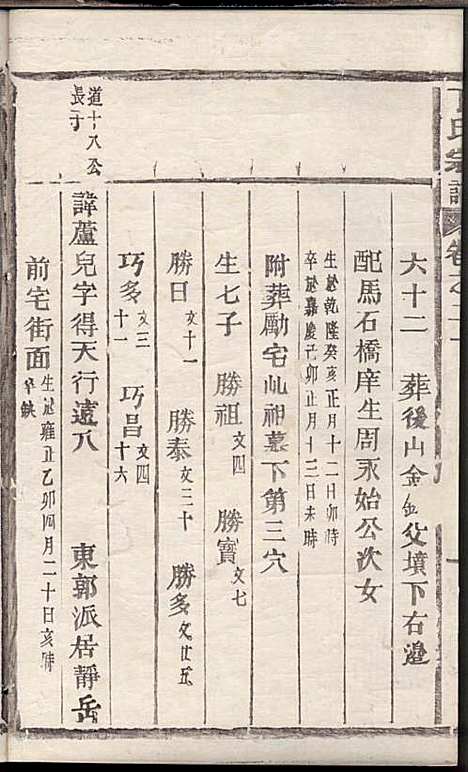 丁氏宗譜 卷之十一
六十二 葬後山金盆父墳下右邊
配馬石橋庠生周永始公次女
生於乾隆癸亥正月十二日卯時
卒於嘉慶己卯正月十三日未時
附葬勵宅山祖墓下第三穴
生七子 勝祖文四 勝寶文七
勝日文十一 勝泰文三十 勝多文廿五
巧多文三十一 巧昌文四十六
道十八公
長子
諱蘆兒字得天行遠八 東郭派居靜岳
前宅街面生於雍正乙卯四月二十日亥時
卒缺